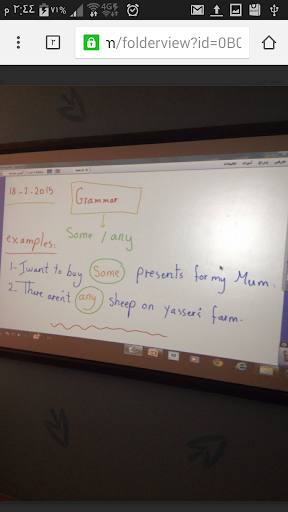 ٢:٤٤ م
٧١%
4G
٢
m/folderview?id=0B0
18-1-2015
Grammar
Some / any
examples:
1- I want to buy Some presents for my Mum.
2- There aren't any sheep on yasser's farm.